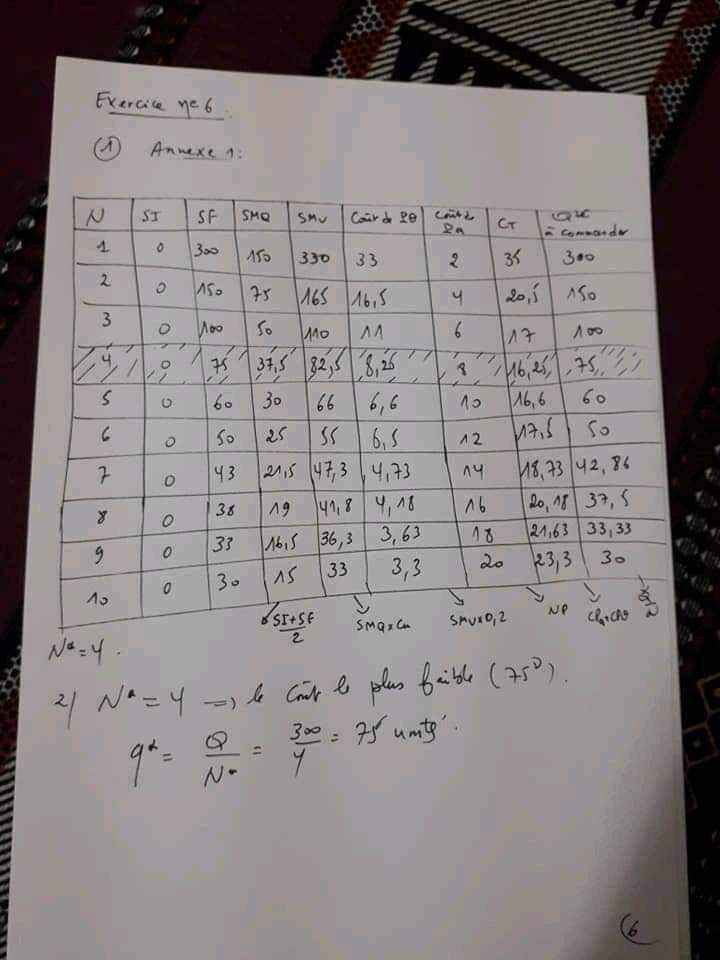 Exercice n° 6.
① Annexe 1:
N SI SF SMQ SMV Coût de Coût de CT Qté à commander
1 0 300 150 330 33 2 35 300
2 0 150 75 165 16,5 4 20,5 150
3 0 100 50 110 11 6 17 100
4 0 75 37,5 82,5 8,25 8 16,25 75
5 0 60 30 66 6,6 10 16,6 60
6 0 50 25 55 5,5 12 17,5 50
7 0 43 21,5 47,3 4,73 14 18,73 42,86
8 0 38 19 41,8 4,18 16 20,18 37,5
9 0 33 16,5 36,3 3,63 18 21,63 33,33
10 0 30 15 33 3,3 20 23,3 30
SI+SF/2 SMQ×Cu SMV×0,2 Q/N
N*=4.
2) N* = 4 ⟹ le Coût le plus faible (75).
q* = Q/N* = 300/4 = 75 unités.
6